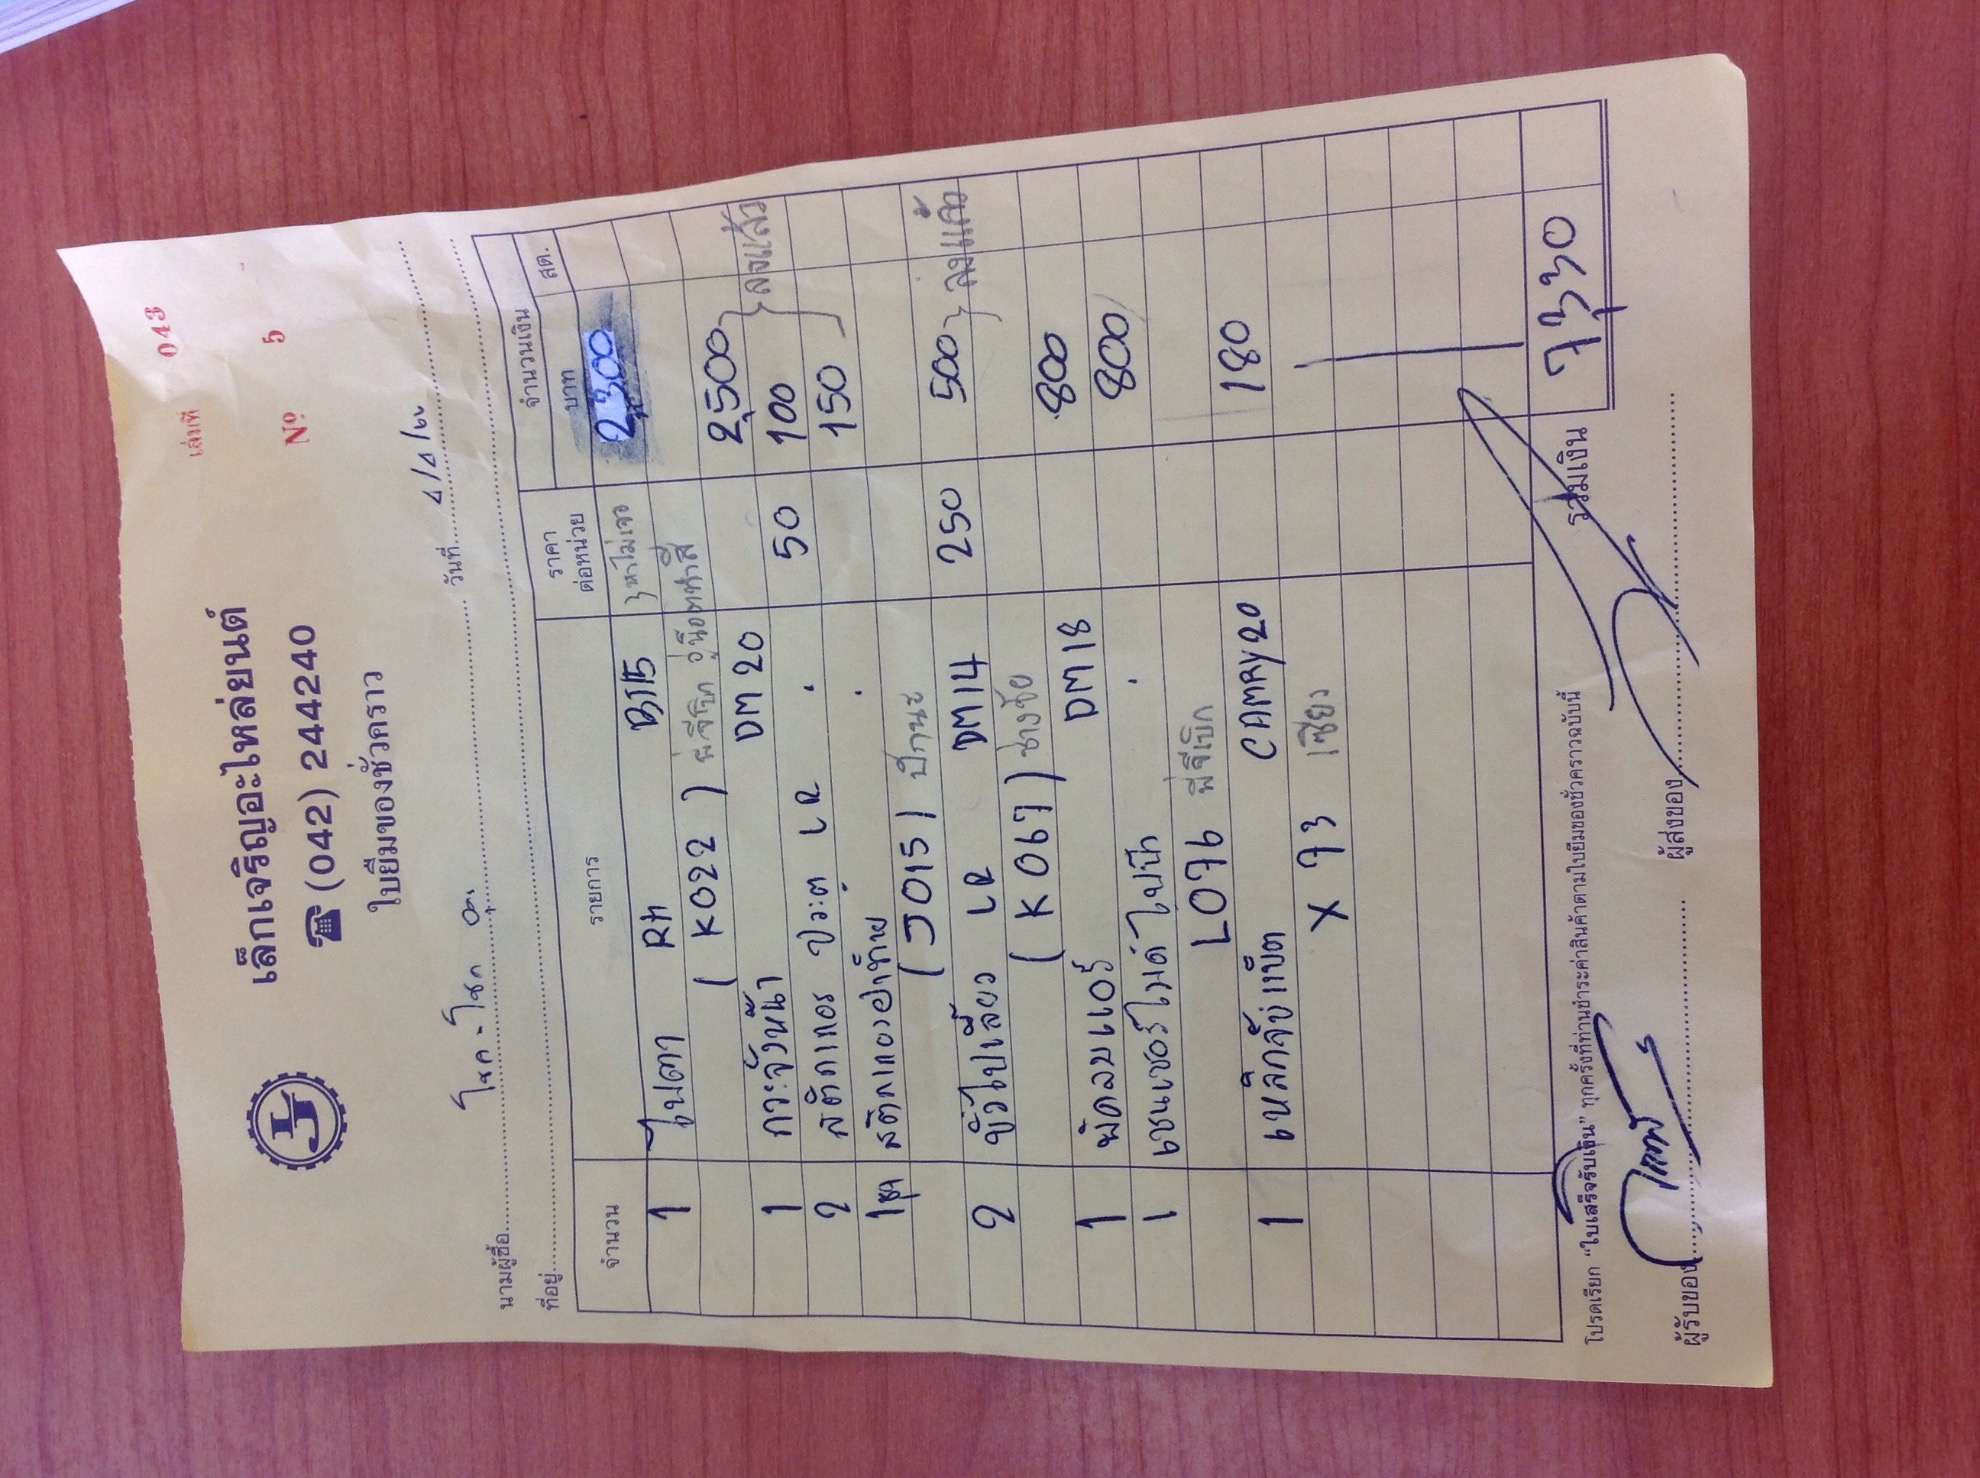 เล่มที่ 043
เล็กเจริญอะไหล่ยนต์
☎ (042) 244240
Nº 5
ใบยืมของชั่วคราว
นามผู้ซื้อ โชค-โชค อุ. วันที่ 4/4/60
ที่อยู่
จำนวน รายการ ราคาต่อหน่วย จำนวนเงิน
บาท สต.
1 ไฟตา RH BJ15 หาไม่เจอ 2,300
(K022)
1 กระจังหน้า DM20 2,500 } ลงแล้ว
2 สติกเกอร์ ประตู LR 50 100
1ชุด สติกเกอร์ฝาท้าย 150
(J015)
2 LR DM14 250 500 } ลงแล้ว
(K067) ช่างชัย
1 พัดลมแอร์ DM18 800
1 800
L076
1 เหล็กจับแบ็ต CAMRY20 180
X93
รวมเงิน 7330
โปรดเรียก "ใบเสร็จรับเงิน" ทุกครั้งที่ท่านชำระค่าสินค้าตามใบยืมของชั่วคราวฉบับนี้
ผู้รับของ ผู้ส่งของ